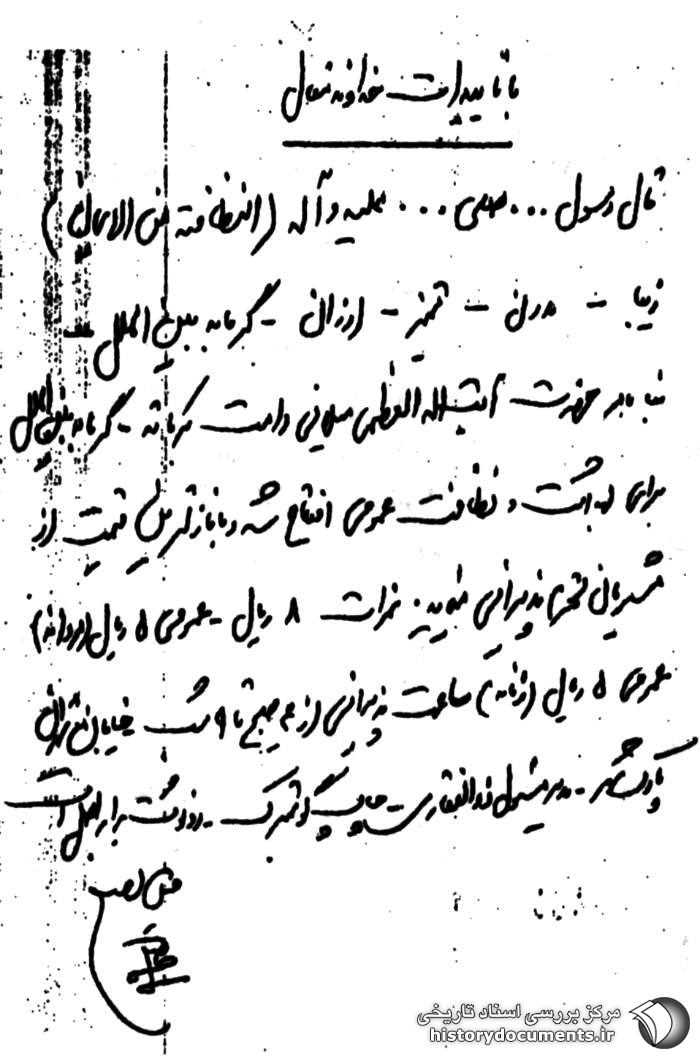 با تاییدات خداوند متعال
قال رسول ... صلی ... علیه و آله (النظافته من الایمان)
زیبا - مدرن - تمیز - ارزان - گرمابه بین المللی -
بنا بامر حضرت آیت اله العظمی میلانی دامت برکاته - گرمابه بین المللی
برای بهداشت و نظافت عمومی افتتاح شد و با نازلترین قیمت از
مشتریان محترم پذیرایی مینماید. نمرات ۸ ریال - عمومی ۵ ریال (مردانه)
عمومی ۵ ریال (زنانه) ساعت پذیرایی از ۴ صبح تا ۹ شب خیابان تهران
پارک شهر - مدیر مسئول ذوالفقاری - چاپ گوتمبرک - رونوشت برابر اصل است
مرکز بررسی اسناد تاریخی
historydocuments.ir